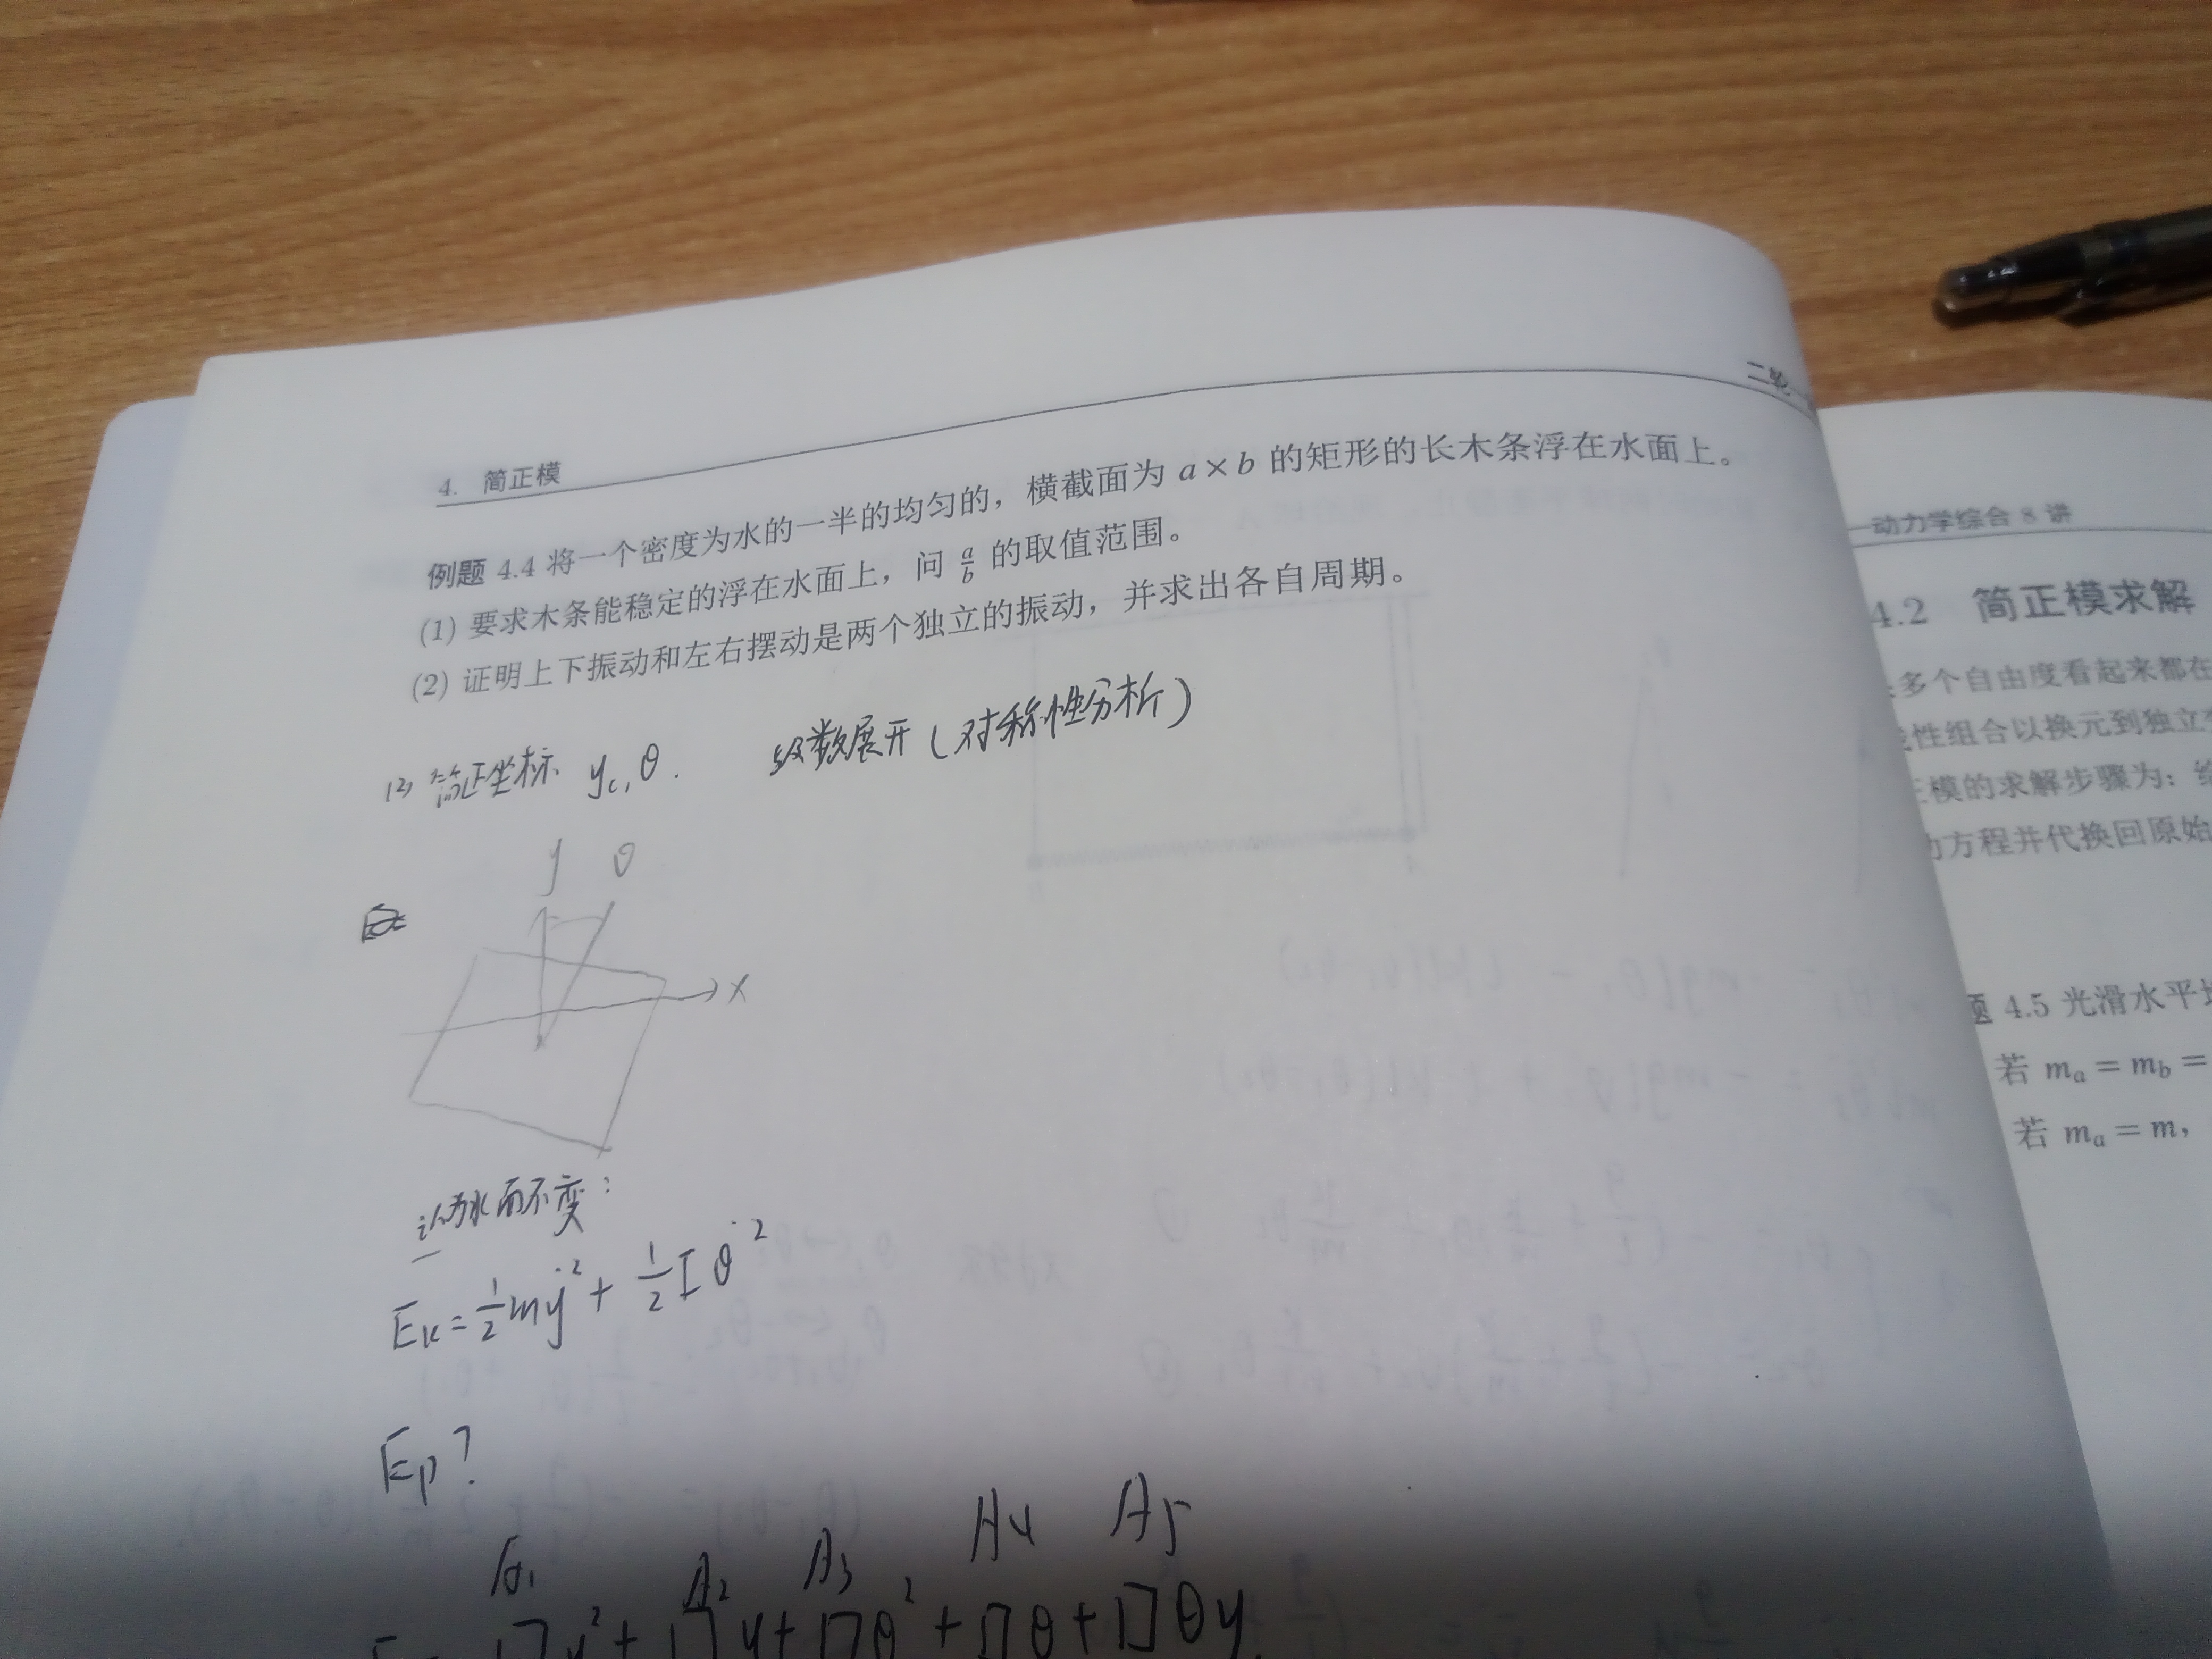 二轮
4. 简正模
例题 4.4 将一个密度为水的一半的均匀的，横截面为 a×b 的矩形的长木条浮在水面上。
(1) 要求木条能稳定的浮在水面上，问 a/b 的取值范围。
(2) 证明上下振动和左右摆动是两个独立的振动，并求出各自周期。
(2) 简正坐标 y_c, θ. 级数展开（对称性分析）
y θ
x
认为水面不变：
E_K = 1/2 mẏ² + 1/2 I θ̇²
E_p?
A₁ A₂ A₃ A₄ A₅
[]y² + []y + []θ² + []θ + []θy
动力学综合 8 讲
4.2 简正模求解
多个自由度看起来都在
性组合以换元到独立
模的求解步骤为：
方程并代换回原始
题 4.5 光滑水平
若 mₐ = m_b =
若 mₐ = m，